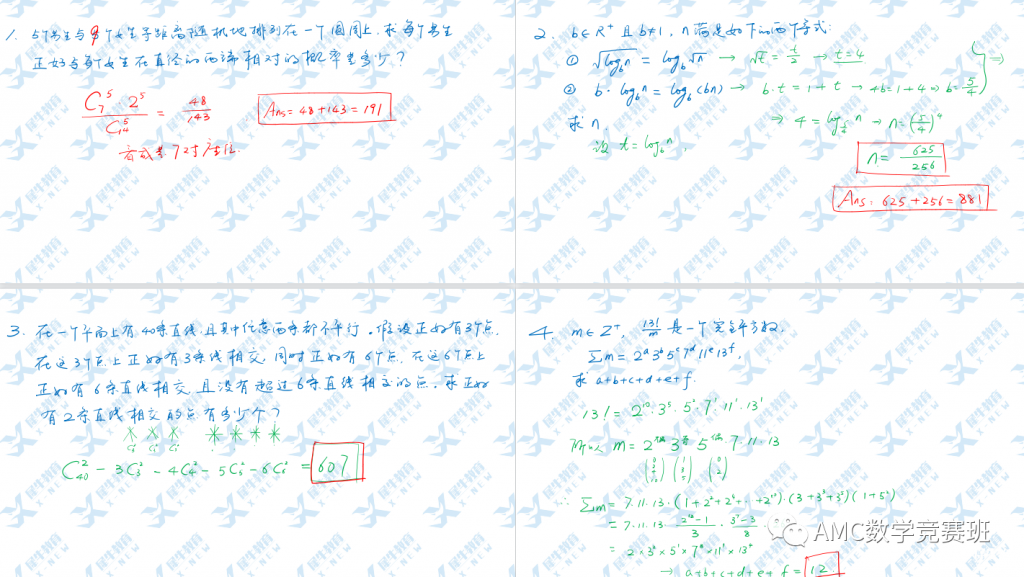 1. 5个男生与9个女生等距离随机地排列在一个圆周上,求每个男生
正好与每个女生在直径的两端相对的概率是多少?
C₇⁵·2⁵ / C₁₄⁵ = 48/143
Ans = 48+143 = 191
2. b∈R⁺ 且 b≠1, n满足如下的两个等式:
① √(log_b n) = log_b √n → √t = t/2 → t=4
② b·log_b n = log_b (bn) → b·t = 1+t → 4b=1+4 → b=5/4
求 n.
设 t = log_b n.
⇒ 4 = log_{5/4} n → n=(5/4)⁴
n = 625/256
Ans: 625+256 = 881
3. 在一个平面上有40条直线,且其中任意两条都不平行。假设正好有3个点,
在这3个点上正好有3条线相交,同时正好有6个点,在这6个点上
正好有6条直线相交,且没有超过6条直线相交的点,求正好
有2条直线相交的点有多少个?
C₄₀² - 3C₃² - 4C₄² - 5C₅² - 6C₆² = 607
4. m∈Z⁺, 13!/m 是一个完全平方数,
∑m = 2ᵃ3ᵇ5ᶜ7ᵈ11ᵉ13ᶠ,
求 a+b+c+d+e+f.
13! = 2¹⁰·3⁵·5²·7¹·11¹·13¹
∴ ∑m = 7·11·13·(1+2²+2⁴+…+2¹⁰)·(3+3³+3⁵)(1+5²)
= 7·11·13·(2¹²-1)/3·(3⁷-3)/8
AMC数学竞赛班
→ a+b+c+d+e+f = 12